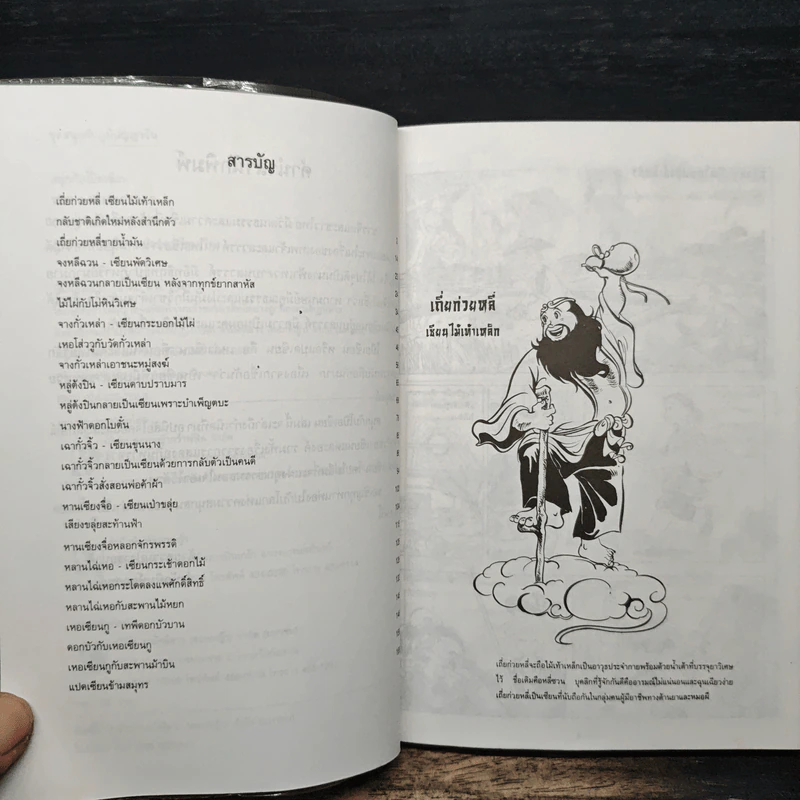 สารบัญ
เถี่ยก่วยหลี่ เซียนไม้เท้าเหล็ก
กลับชาติเกิดใหม่หลังสำนึกตัว
เถี่ยก่วยหลี่ขายน้ำมัน
จงหลีฉวน - เซียนพัดวิเศษ
จงหลีฉวนกลายเป็นเซียน หลังจากทุกข์ยากสาหัส
ไม้ไผ่กับโม่หินวิเศษ
จางกั๋วเหล่า - เซียนกระบอกไม้ไผ่
เหอโส่ววูกับวัดกั๋วเหล่า
จางกั๋วเหล่าเอาชนะหมู่สงฆ์
หลู่ต้งปิน - เซียนดาบปราบมาร
หลู่ต้งปินกลายเป็นเซียนเพราะบำเพ็ญตบะ
นางฟ้าดอกโบตั๋น
เฉากั๋วจิ้ว - เซียนขุนนาง
เฉากั๋วจิ้วกลายเป็นเซียนด้วยการกลับตัวเป็นคนดี
เฉากั๋วจิ้วสั่งสอนพ่อค้าผ้า
หานเซียงจื่อ - เซียนเป่าขลุ่ย
เสียงขลุ่ยสะท้านฟ้า
หานเซียงจื่อหลอกจักรพรรดิ
หลานไฉ่เหอ - เซียนกระเช้าดอกไม้
หลานไฉ่เหอกระโดดลงแพศักดิ์สิทธิ์
หลานไฉ่เหอกับสะพานไม้หยก
เหอเซียนกู - เทพีดอกบัวบาน
ดอกบัวกับเหอเซียนกู
เหอเซียนกูกับสะพานม้าบิน
แปดเซียนข้ามสมุทร
เถี่ยก่วยหลี่
เซียนไม้เท้าเหล็ก
เถี่ยก่วยหลี่จะถือไม้เท้าเหล็กเป็นอาวุธประจำกายพร้อมด้วยน้ำเต้าที่บรรจุยาวิเศษ
ไว้ ชื่อเดิมคือหลี่ซวน บุคลิกที่รู้จักกันดีคืออารมณ์ไม่แน่นอนและฉุนเฉียวง่าย
เถี่ยก่วยหลี่เป็นเซียนที่นับถือกันในกลุ่มคนผู้มีอาชีพทางด้านยาและหมอผี